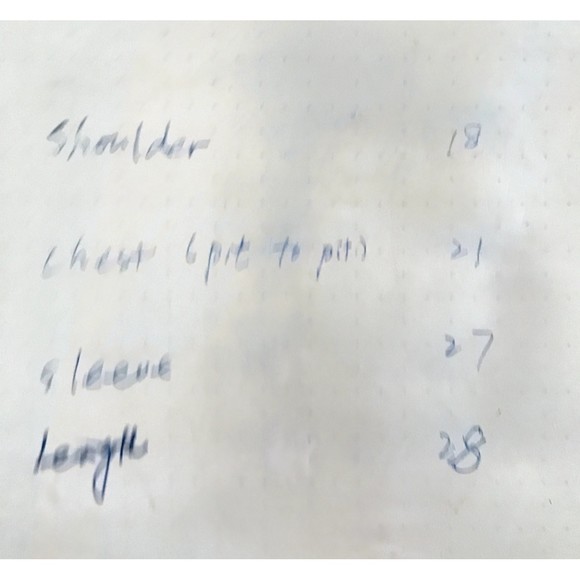 Shoulder 18
Chest (pit to pit) 21
Sleeve 27
Length 28